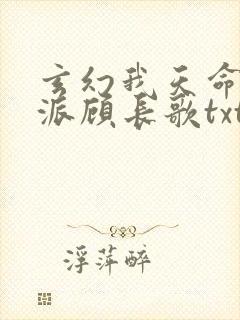 玄幻我天命
派顾长歌txt
浮萍醉